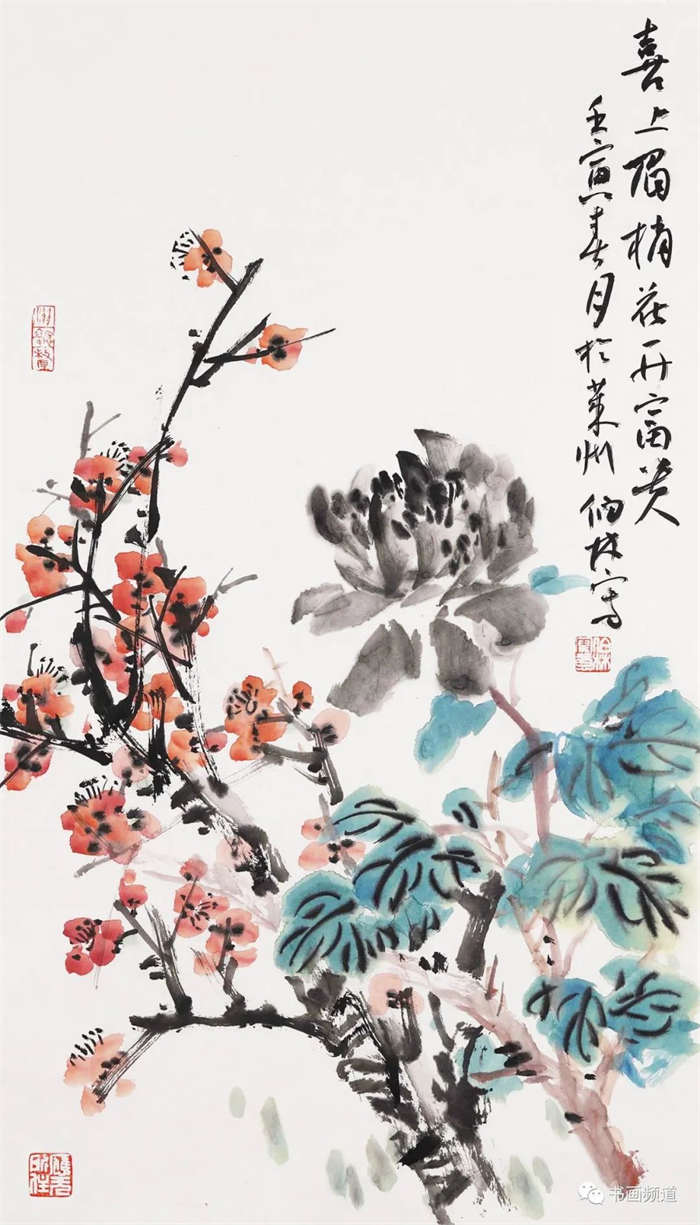 喜上眉梢花开富贵
壬寅春月於莱州 伯林写
书画频道